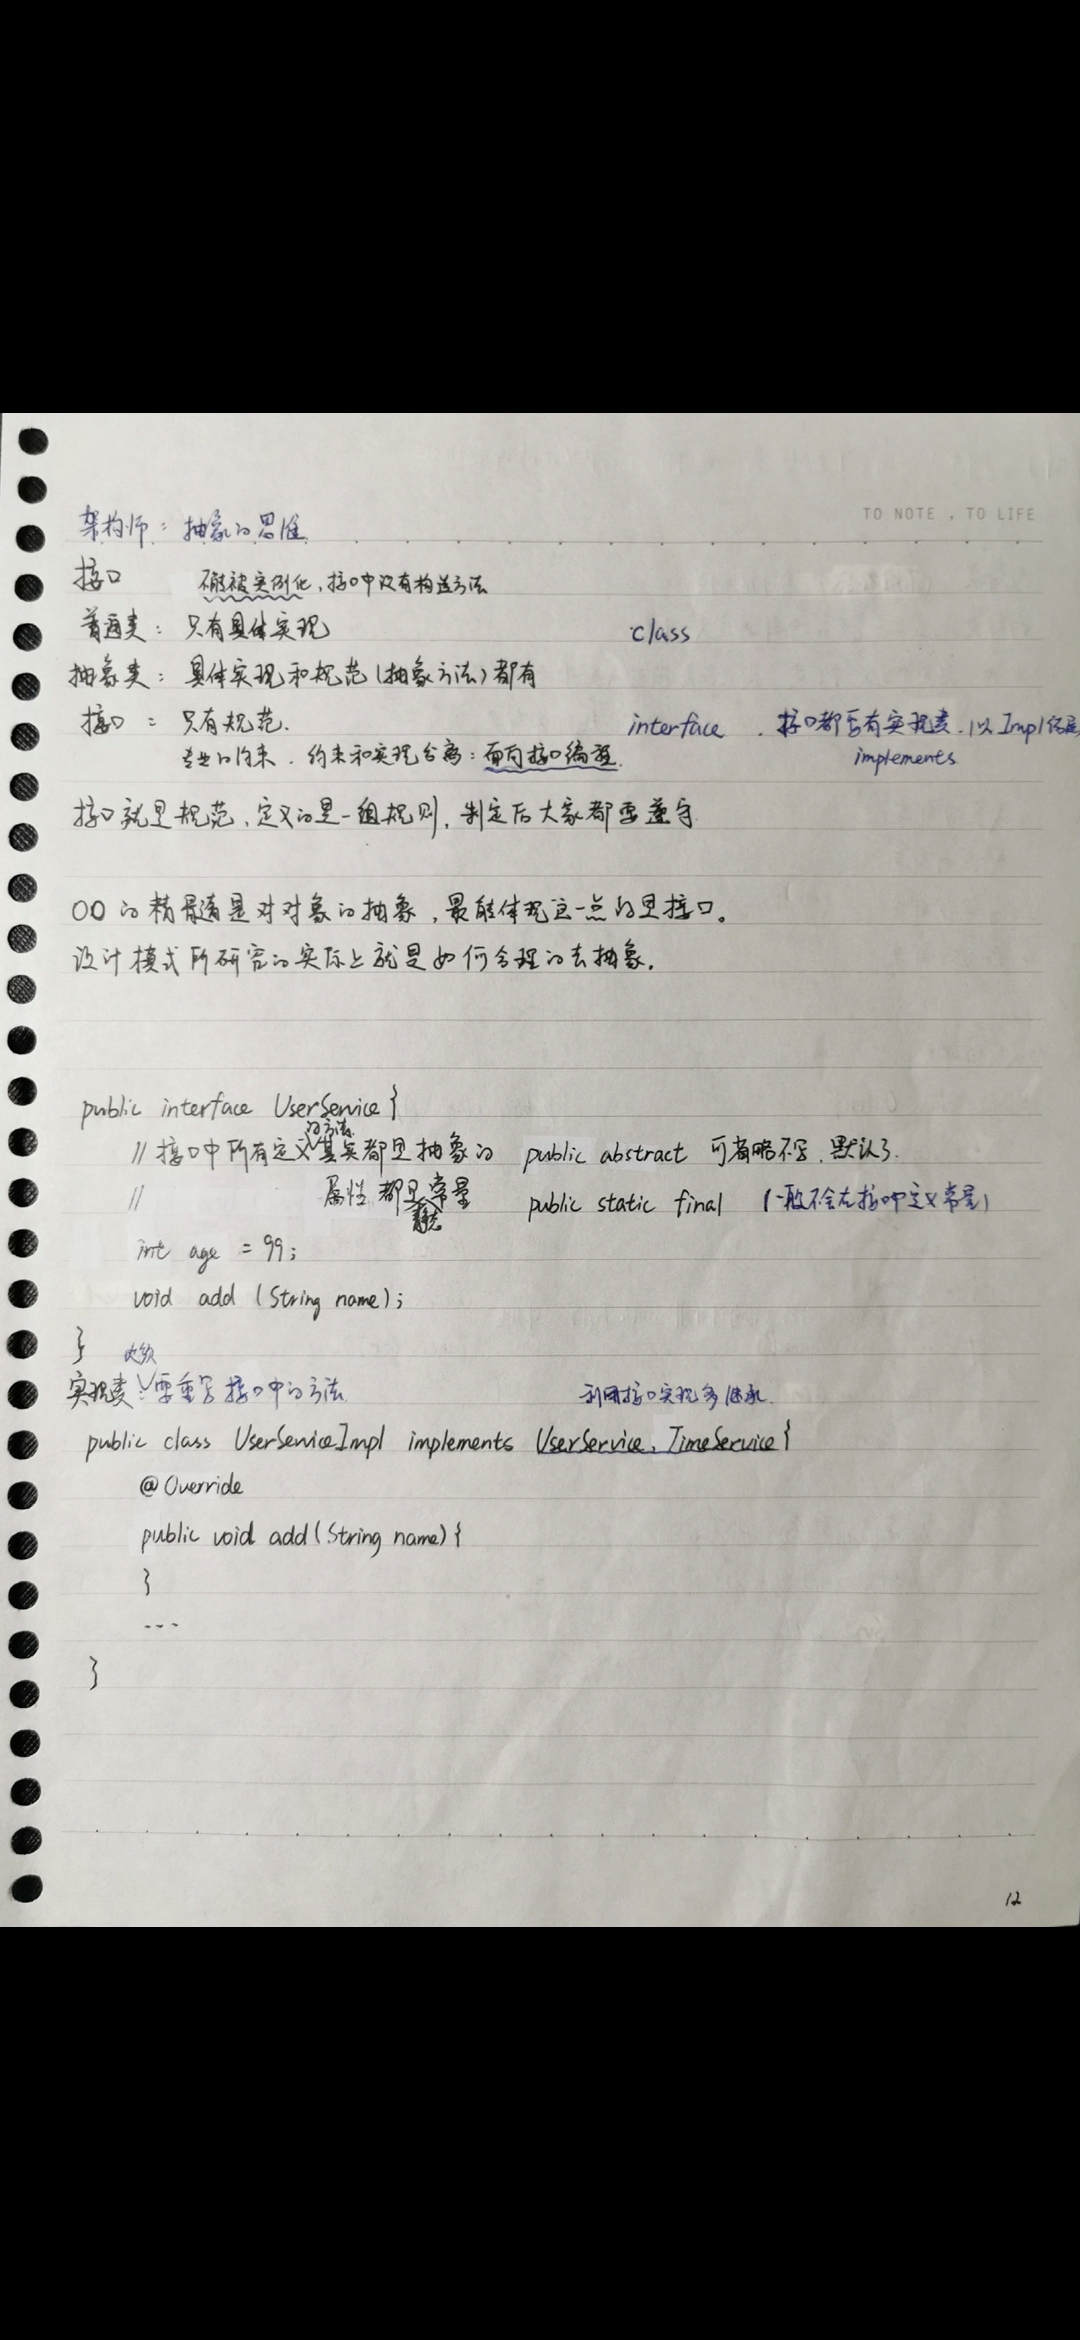 TO NOTE , TO LIFE
架构师：抽象的思维
接口 不能被实例化，接口中没有构造方法
普通类：只有具体实现 class
抽象类：具体实现和规范（抽象方法）都有
接口：只有规范. interface . 接口都要有实现类. 以Impl结尾
专业的约束. 约束和实现分离：面向接口编程. implements
接口就是规范，定义的是一组规则，制定后大家都要遵守
OO的精髓是对对象的抽象，最能体现这一点的是接口。
设计模式所研究的实际上就是如何合理的去抽象。
public interface UserService {
// 接口中所有定义的方法其实都是抽象的 public abstract 可省略不写. 默认了.
// 属性都是静态常量 public static final (一般不会在接口中定义常量)
int age = 99;
void add (String name);
}
实现类：必须要重写接口中的方法 利用接口实现多继承.
public class UserServiceImpl implements UserService, TimeService {
@Override
public void add(String name) {
}
...
}
12